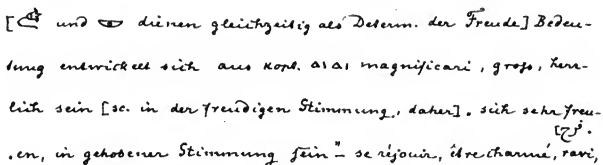 [ und dienen gleichzeitig als Determ. der Freude] Bedeu-
tung entwickelt sich aus kopt. ⲁⲓⲁⲓ magnificari, groß, herr-
lich sein [sc. in der freudigen Stimmung, daher]. sich sehr freu-
[فرح].
.en, in gehobener Stimmung sein" – se réjouir, être charmé, ravi,